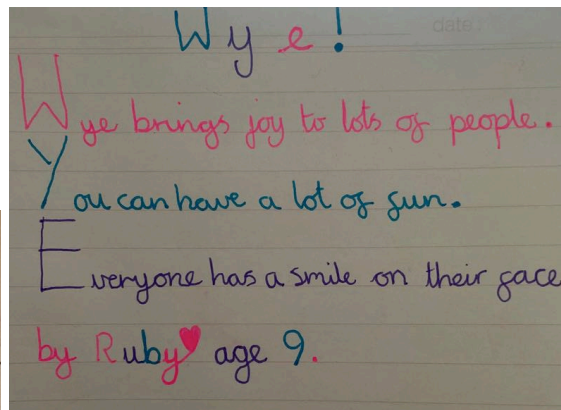 date:
Wye!
Wye brings joy to lots of people.
You can have a lot of fun.
Everyone has a smile on their face
by Ruby♥ age 9.